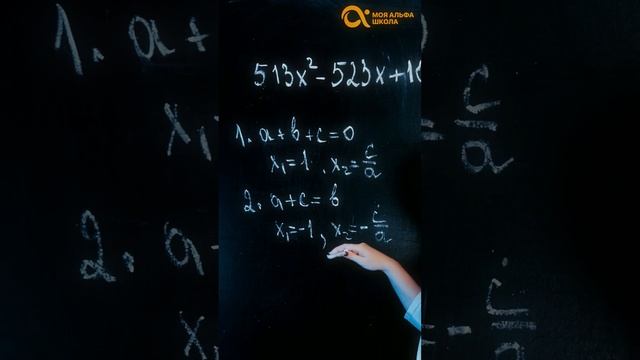 МОЯ АЛЬФА
ШКОЛА
513x² - 523x + 1
1. a + b + c = 0
x₁ = 1, x₂ = c/a
2. a + c = b
x₁ = -1, x₂ = -c/a